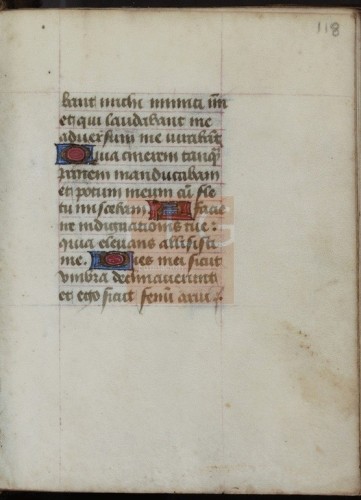 118
bant michi inimici mei
et qui laudabant me
adversum me iurabant
Quia cinerem tanq̃
panem manducabam
et potum meum cũ fle
tu miscebam. A facie
ire indignationis tue :
quia elevans allisisti
me. Dies mei sicut
umbra declinaverunt
et ego sicut fenũ arui :